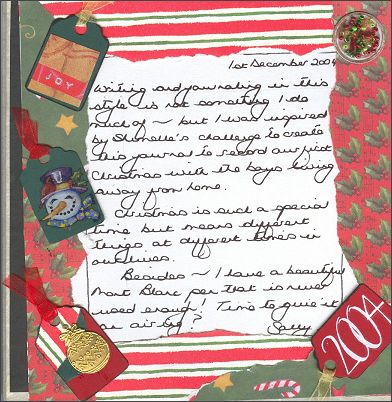 JOY
1st December 2004
Writing and journaling in this
style is not something I do
much of ~ but I was inspired
by Shimelle's challenge to create
this journal to record our first
Christmas with the boys living
away from home.
Christmas is such a special
time but means different
things at different times in
our lives.
Besides ~ I have a beautiful
Mont Blanc pen that is never
used enough! Time to give it
an airing!
Sally
2004